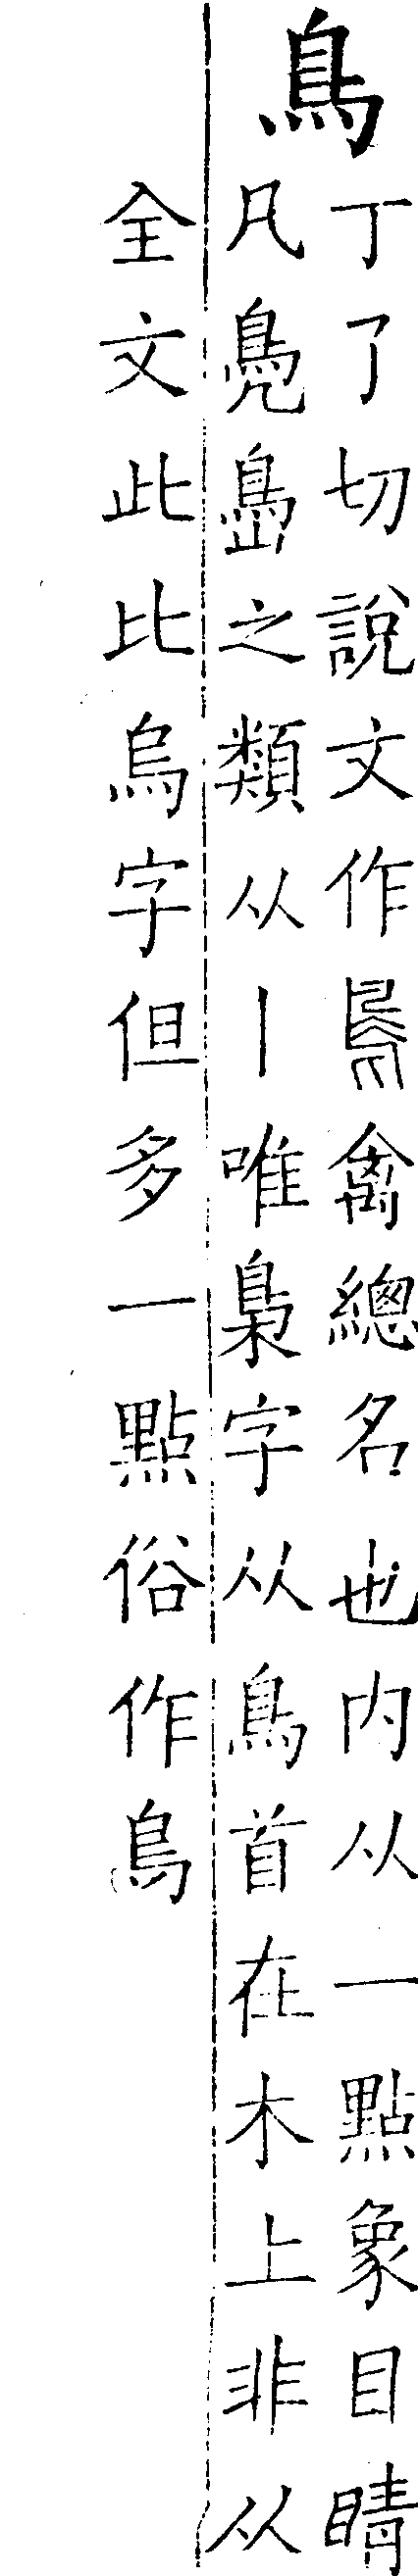 鳥
丁了切說文作禽總名也内从一點象目睛
凡鳧島之類从丨唯梟字从鳥首在木上非从
全文此比烏字但多一點俗作鳥